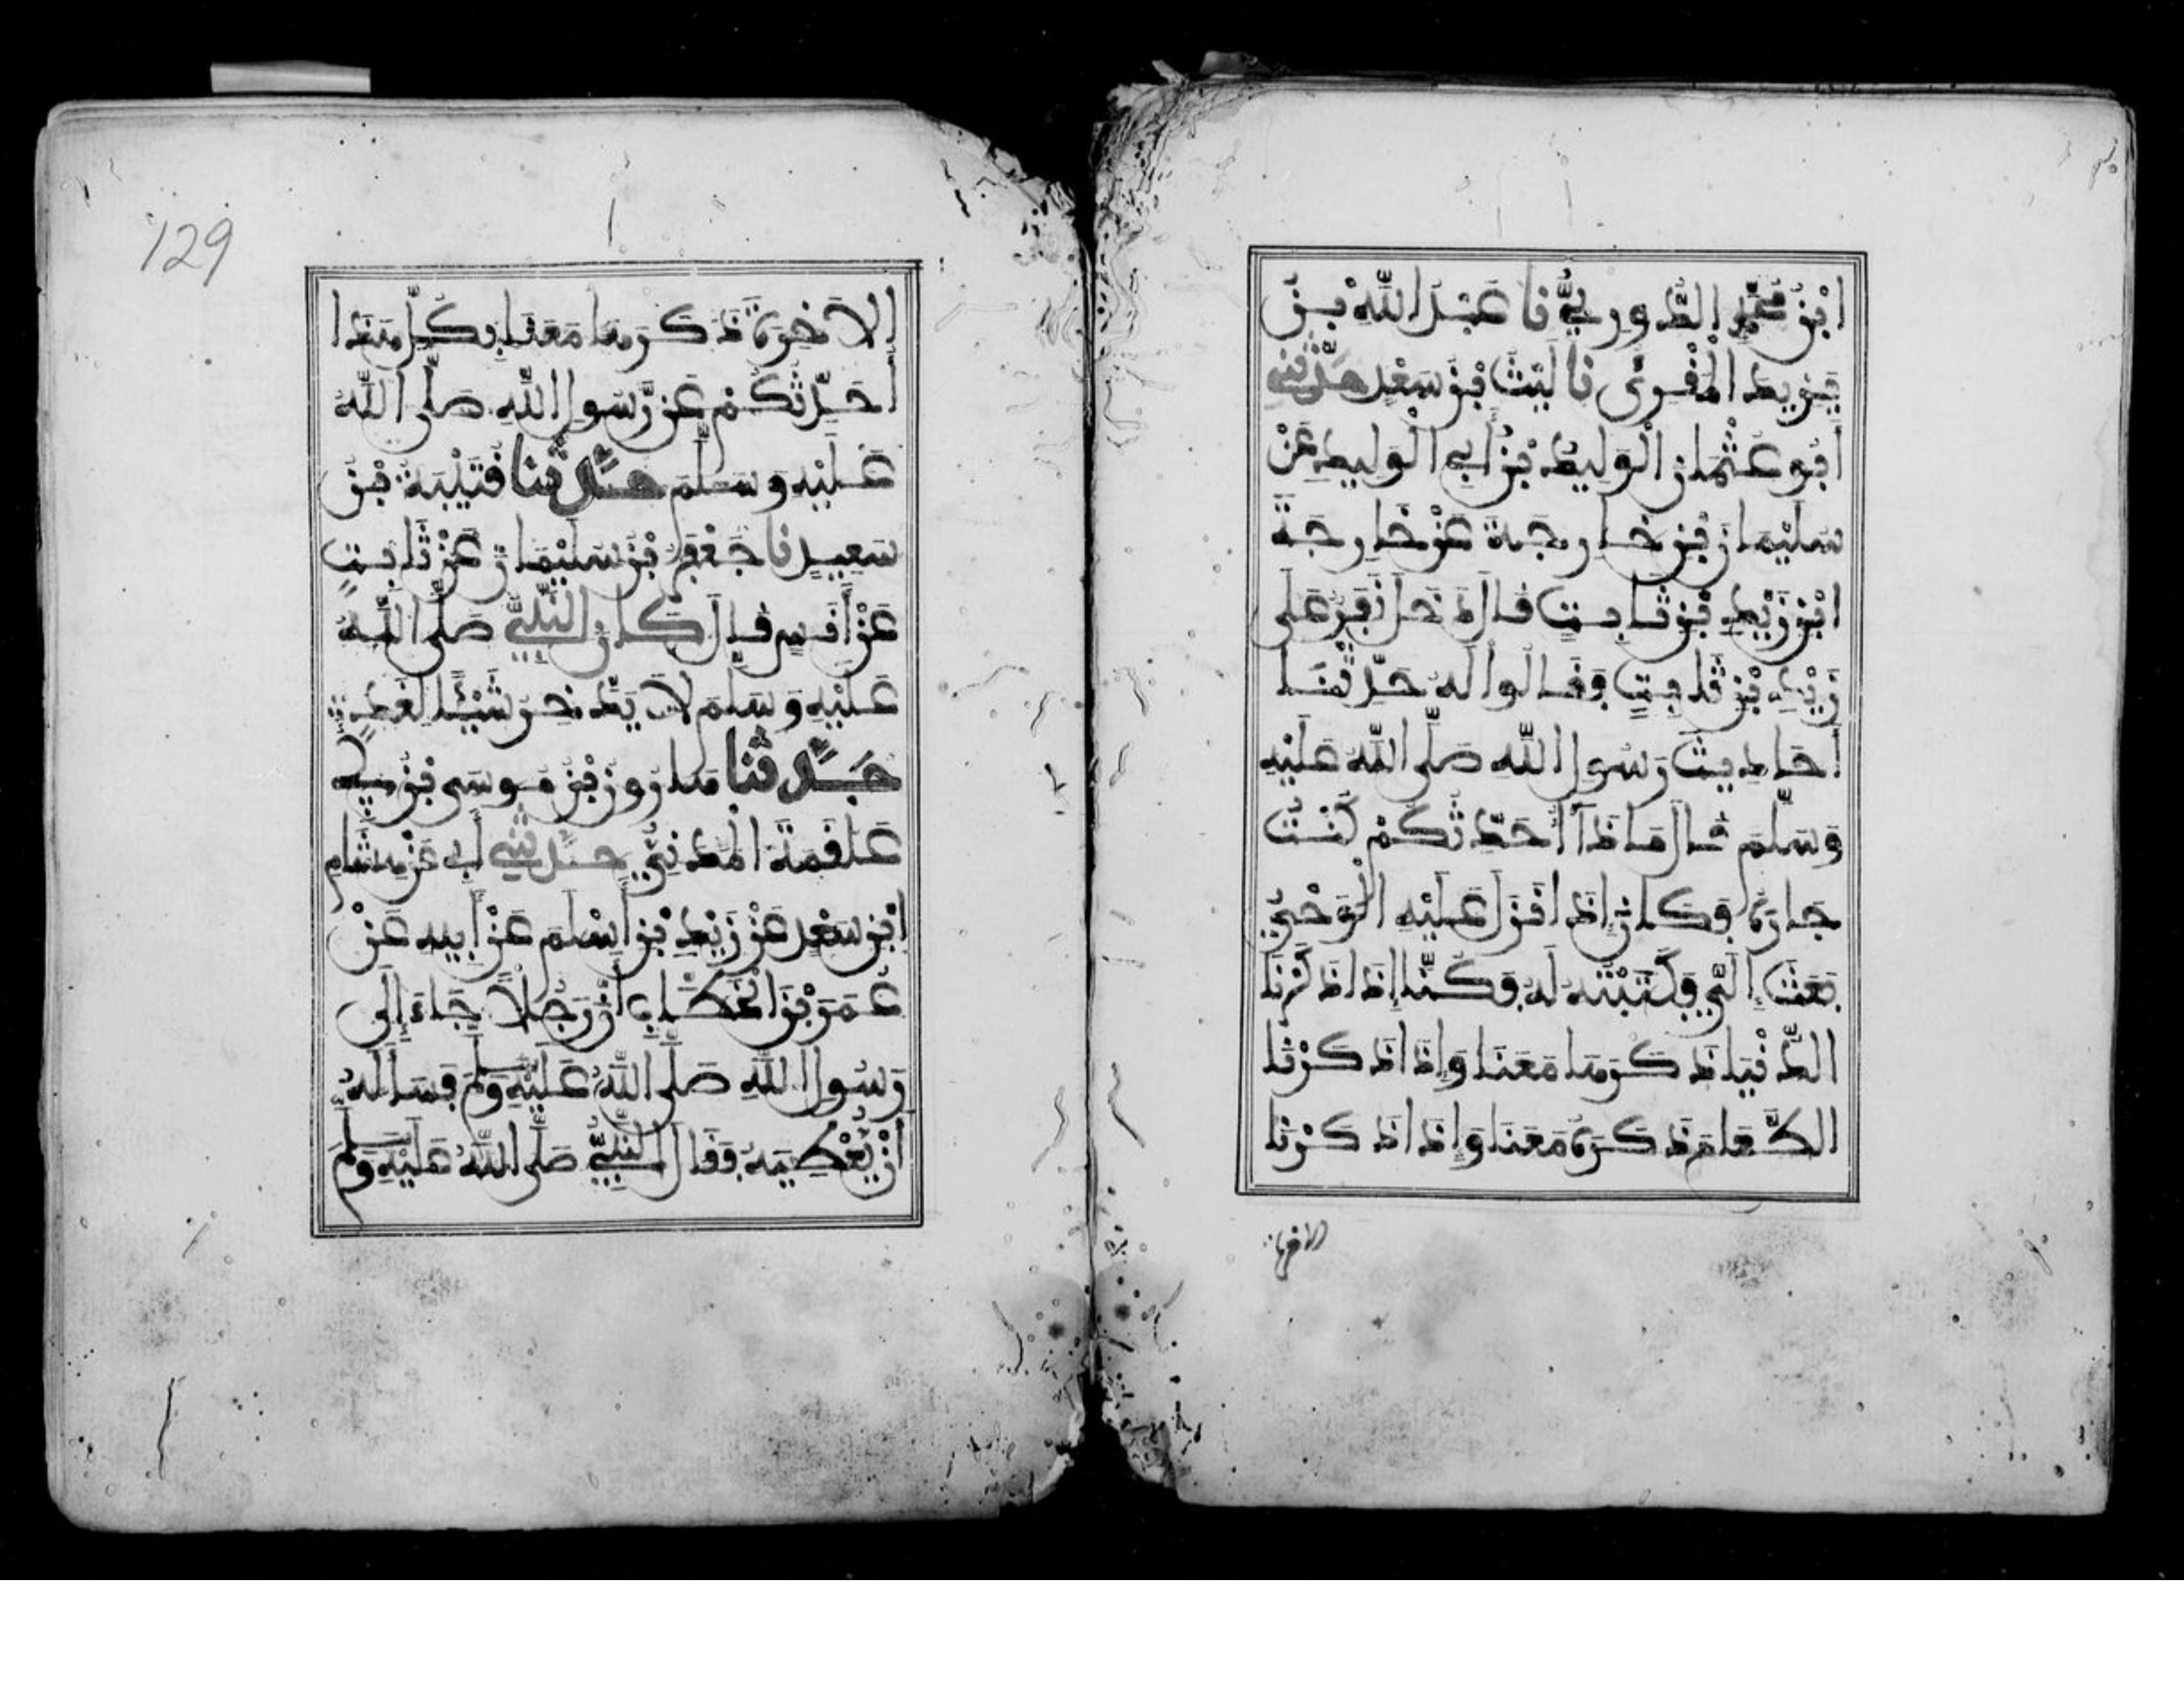 ابْنُ مُحَمَّدٍ الدُّورِيُّ نا عَبْدُ اللَّهِ بْنُ
يَزِيدَ الْمُقْرِئُ نا لَيْثُ بْنُ سَعْدٍ حَدَّثَنِي
أَبُو عُثْمَانَ الْوَلِيدُ بْنُ أَبِي الْوَلِيدِ عَنْ
سُلَيْمَانَ بْنِ خَارِجَةَ عَنْ خَارِجَةَ
ابْنِ زَيْدِ بْنِ ثَابِتٍ قَالَ دَخَلَ نَفَرٌ عَلَى
زَيْدِ بْنِ ثَابِتٍ فَقَالُوا لَهُ حَدِّثْنَا
أَحَادِيثَ رَسُولِ اللَّهِ صَلَّى اللَّهُ عَلَيْهِ
وَسَلَّمَ قَالَ مَاذَا أُحَدِّثُكُمْ كُنْتُ
جَارَهُ فَكَانَ إِذَا نَزَلَ عَلَيْهِ الْوَحْيُ
بَعَثَ إِلَيَّ فَكَتَبْتُهُ لَهُ فَكُنَّا إِذَا ذَكَرْنَا
الدُّنْيَا ذَكَرَهَا مَعَنَا وَإِذَا ذَكَرْنَا
الطَّعَامَ ذَكَرَهُ مَعَنَا وَإِذَا ذَكَرْنَا
الآخرة
129
الآخِرَةَ ذَكَرَهَا مَعَنَا فَكُلُّ هَذَا
أُحَدِّثُكُمْ عَنْ رَّسُولِ اللَّهِ صَلَّى اللَّهُ
عَلَيْهِ وَسَلَّمَ حَدَّثَنَا قُتَيْبَةُ بْنُ
سَعِيدٍ نا جَعْفَرُ بْنُ سُلَيْمَانَ عَنْ ثَابِتٍ
عَنْ أَنَسٍ قَالَ كَانَ النَّبِيُّ صَلَّى اللَّهُ
عَلَيْهِ وَسَلَّمَ لَا يَدَّخِرُ شَيْئًا لِغَدٍ
حَدَّثَنَا هَارُونُ بْنُ مُوسَى بْنِ أَبِي
عَلْقَمَةَ الْمَدَنِيُّ حَدَّثَنِي أَبِي عَنْ هِشَامِ
ابْنِ سَعْدٍ عَنْ زَيْدِ بْنِ أَسْلَمَ عَنْ أَبِيهِ عَنْ
عُمَرَ بْنِ الْخَطَّابِ أَنَّ رَجُلًا جَاءَ إِلَى
رَسُولِ اللَّهِ صَلَّى اللَّهُ عَلَيْهِ وَسَلَّمَ فَسَأَلَهُ
أَنْ يُعْطِيَهُ فَقَالَ النَّبِيُّ صَلَّى اللَّهُ عَلَيْهِ وَسَلَّمَ